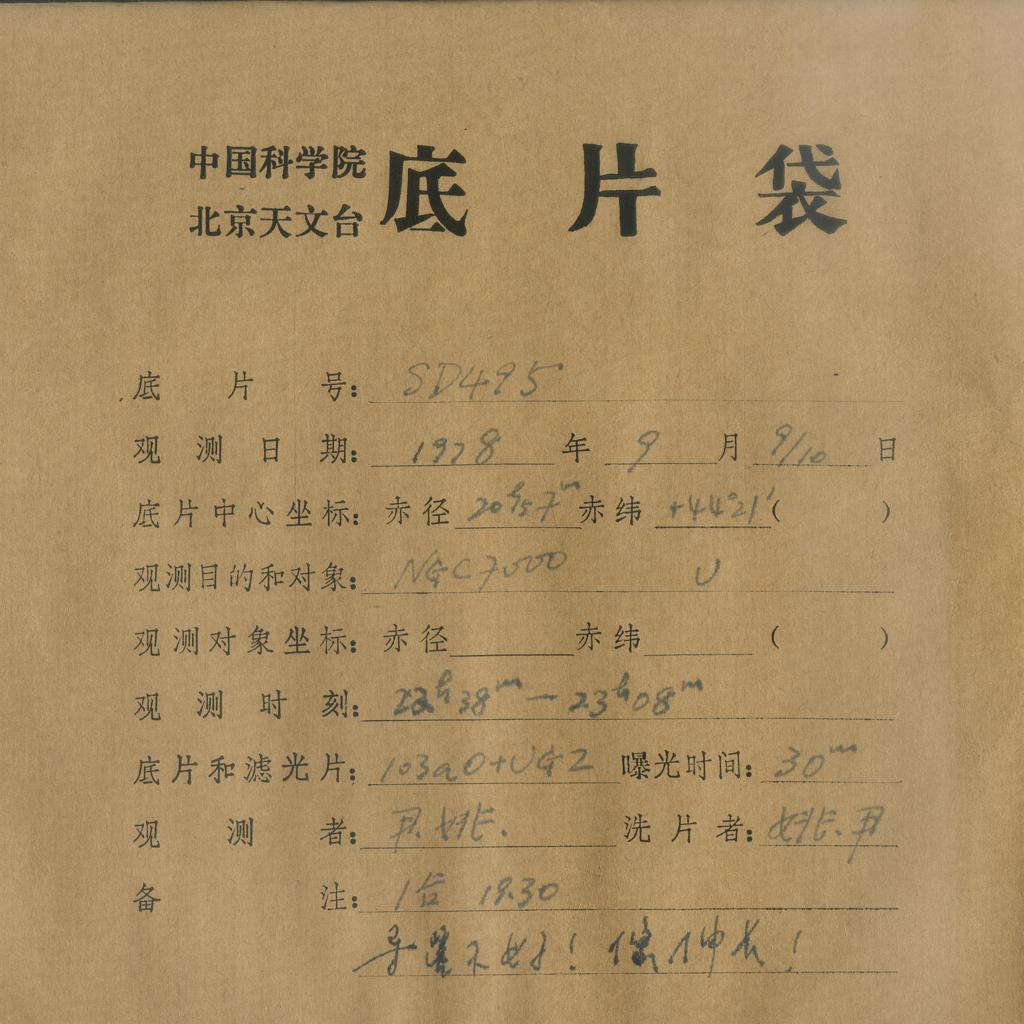 中国科学院
北京天文台
底片袋
底片号: SD495
观测日期: 1978 年 9 月 9/10 日
底片中心坐标: 赤径 20ʰ57ᵐ 赤纬 +44°21′( )
观测目的和对象: NGC7000 U
观测对象坐标: 赤径 赤纬 ( )
观测时刻: 22ʰ38ᵐ — 23ʰ08ᵐ
底片和滤光片: 103aO+UG2 曝光时间: 30ᵐ
观测者: 尹.姚.
洗片者: 姚.尹
备注: 1台 19.30
导星不好!像伸长!